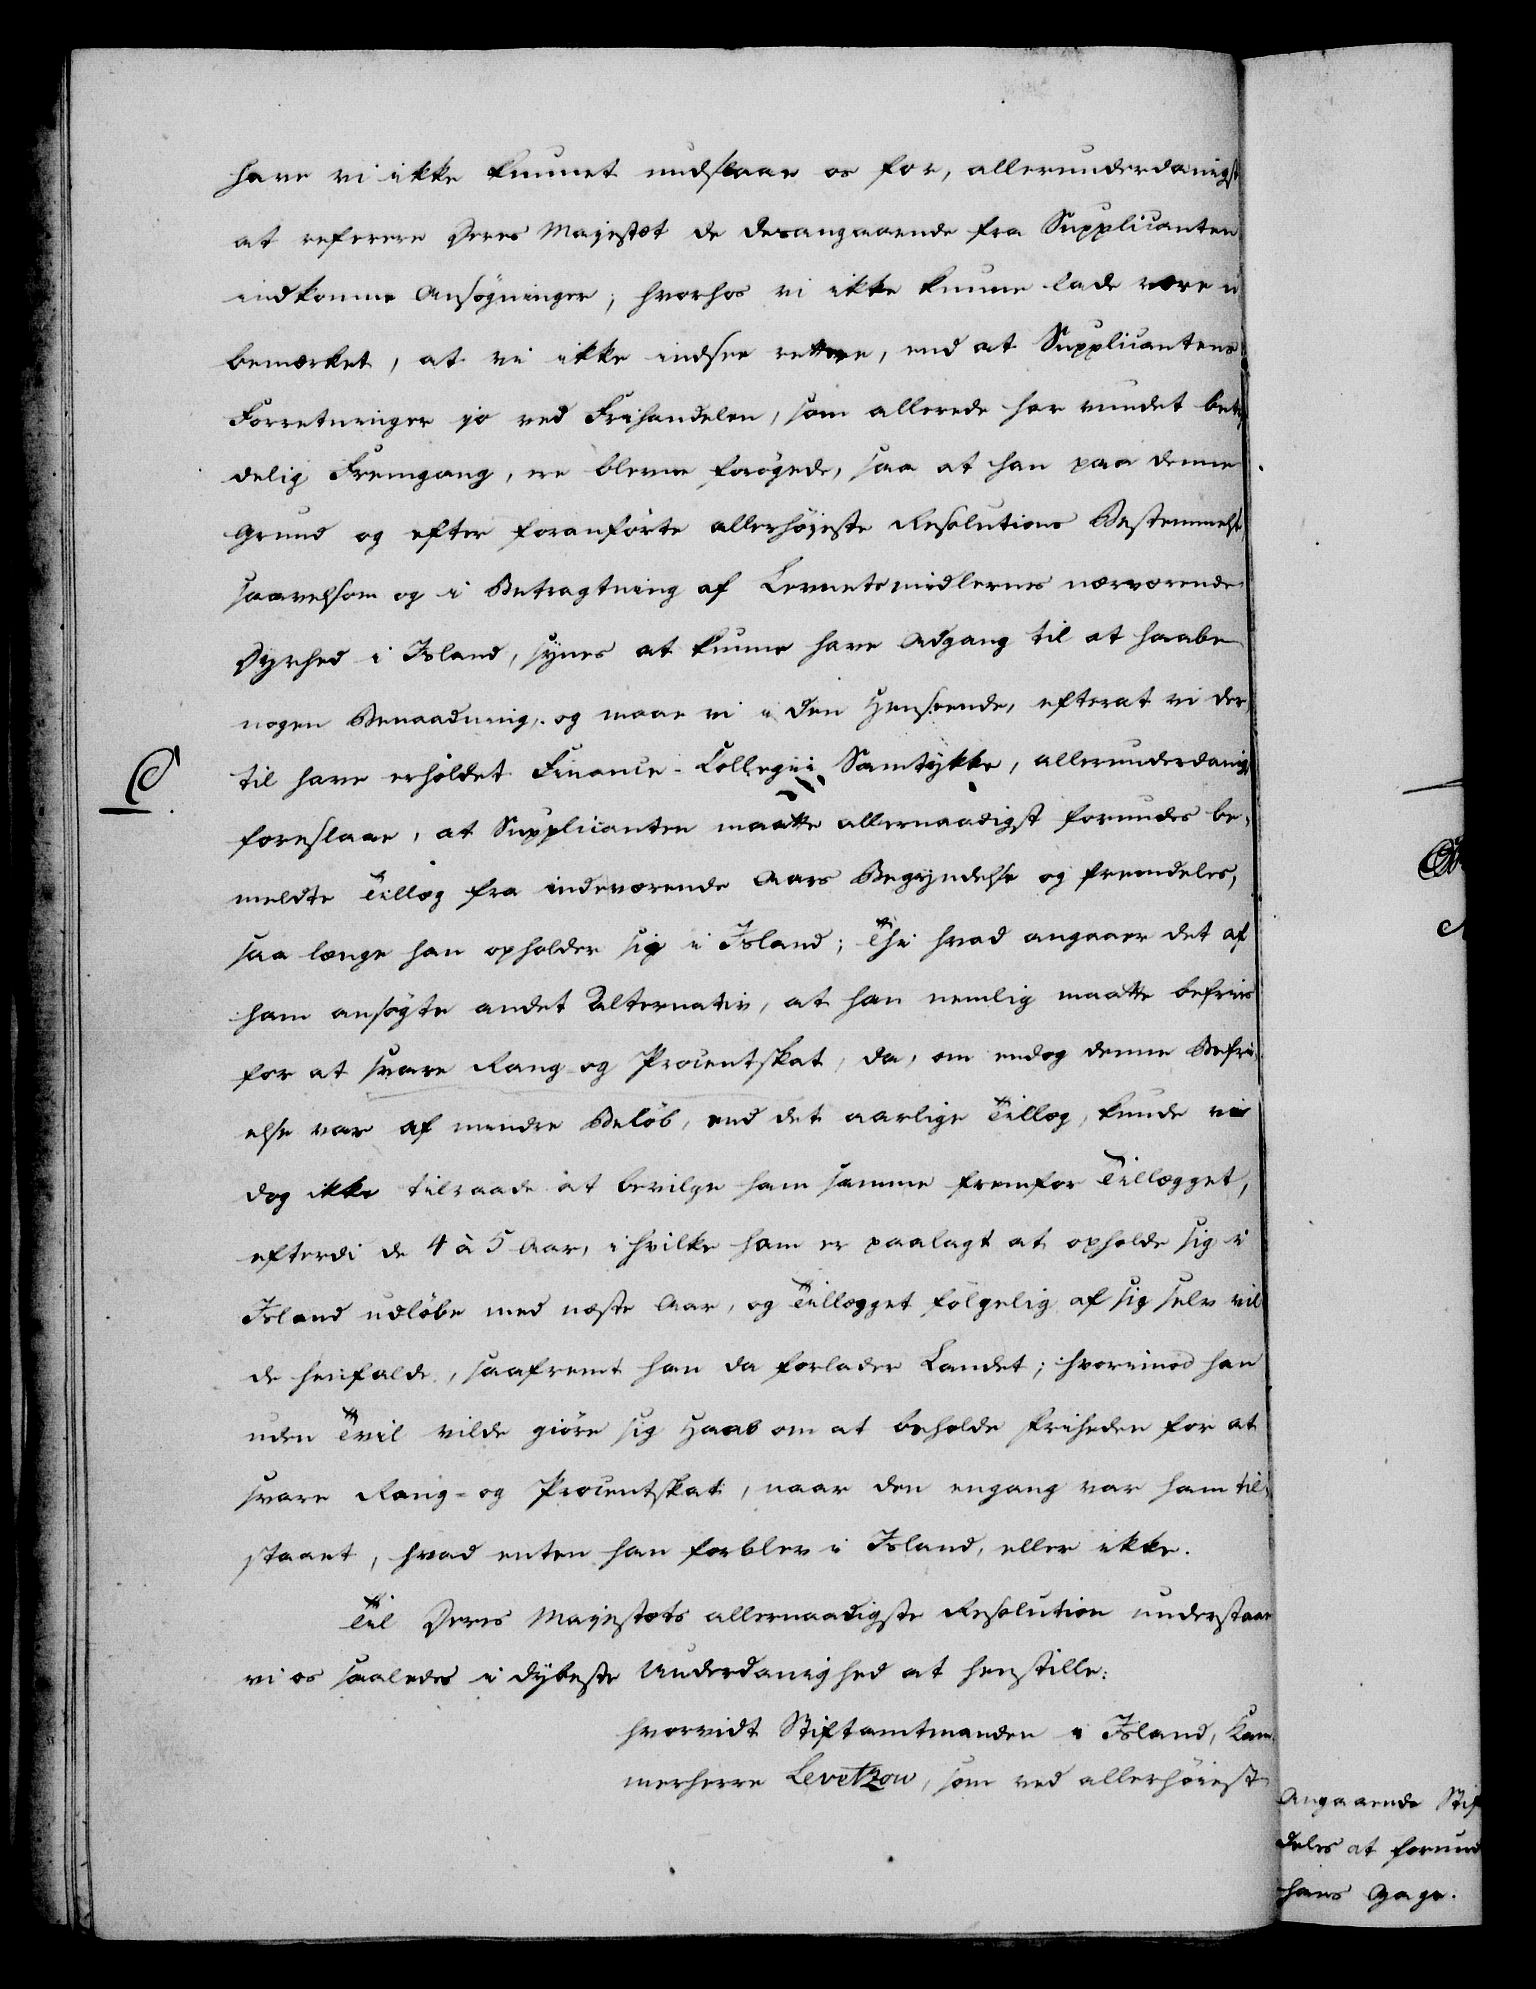 have vi ikke kunnet undslaae os for, allerunderdanigst
at referere Deres Majestæt de desangaaende fra Supplicanten
indkomne Ansøgninger; hvorhos vi ikke kunne lade være u
bemærket, at vi ikke indsee rettere, end at Supplicantens
Forretninger jo ved Frihandelen, som allerede har vundet bety
delig Fremgang, ere blevne forøgede, saa at han paa denne
Grund og efter foranførte allerhøjeste Resolutions Bestemmelse
saavelsom og i Betragtning af Levnetsmidlernes nærværende
Dyrhed i Island, synes at kunne have Adgang til at haabe
nogen Benaadning, og maae vi i den Henseende, efterat vi der
til have erholdet Finance-Collegii Samtykke, allerunderdanigst
C.
foreslaae, at Supplicanten maatte allernaadigst forundes be-
meldte Tillæg fra indeværende Aars Begyndelse og fremdeles,
saa længe han opholder sig i Island; Thi hvad angaaer det af
ham ansøgte andet Alternativ, at han nemlig maatte befries
for at svare Rang og Procentskat, da, om endog denne Befri-
else var af mindre Beløb, end det aarlige Tillæg, kunde vi
dog ikke tilraade at bevilge ham samme fremfor Tillægget,
efterdi de 4 à 5 Aar, i hvilke ham er paalagt at opholde sig i
Island udløbe med næste Aar, og Tillægget følgelig af sig selv vil
de henfalde, saafremt han da forlader Landet; hvorimod han
uden Tvil vilde giøre sig Haab om at beholde Friheden for at
svare Rang- og Procentskat, naar den engang var ham til-
staaet, hvad enten han forblev i Island, eller ikke.
Til Deres Majestæts allernaadigste Resolution understaae
vi os saaledes i dybeste Underdanighed at henstille:
hvorvidt Stiftamtmanden i Island, Kam-
merherre Levetzow, som ved allerhøiest
Angaaende Stif
deles at forund
hans Gage.